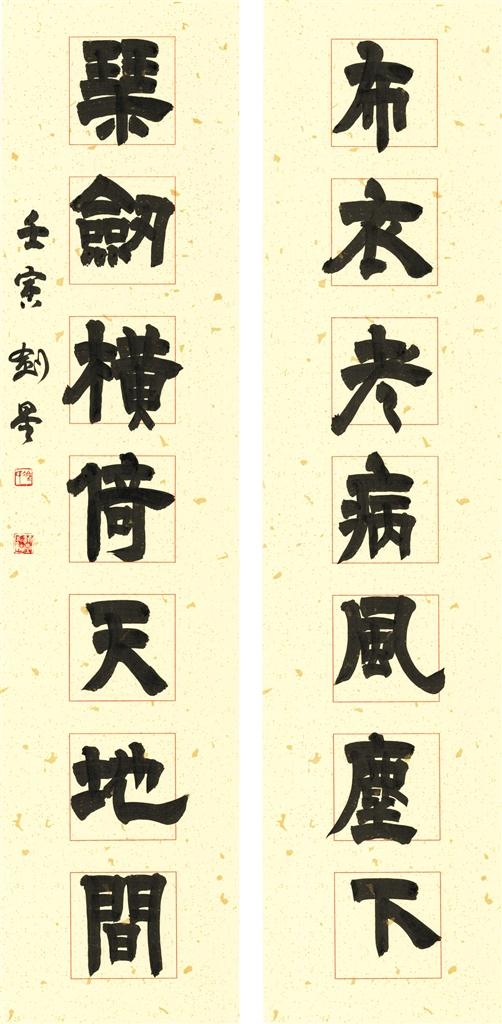 布衣老病風塵下
琹劒橫倚天地間
壬寅